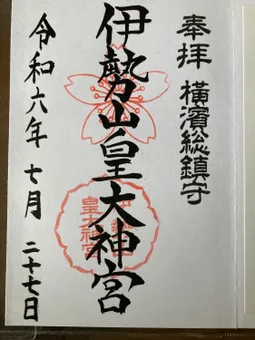 奉拝 横濱総鎮守
伊勢山皇大神宮
令和六年 七月 二十七日
伊勢山
皇大神宮